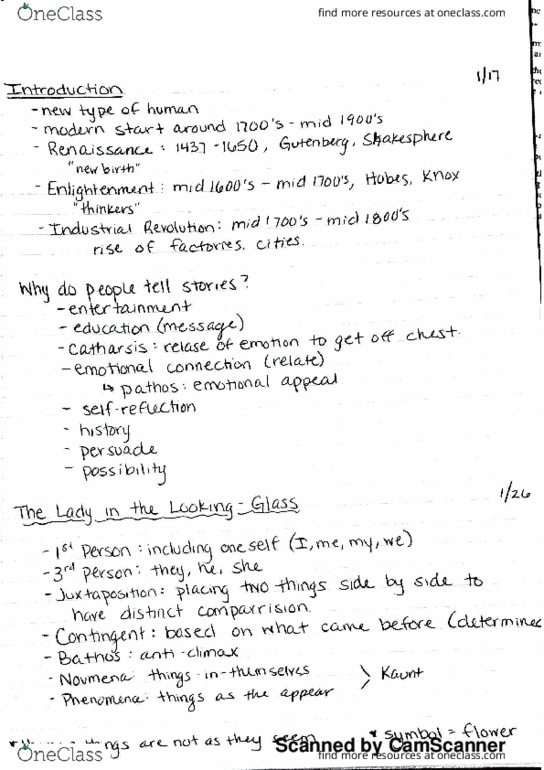 OneClass
find more resources at oneclass.com
1/17
Introduction
- new type of human
- modern start around 1700's - mid 1900's
- Renaissance: 1437-1650, Gutenberg, Shakesphere
"new birth"
- Enlightenment: mid 1600's - mid 1700's, Hobes, Knox
"thinkers"
- Industrial Revolution: mid 1700's - mid 1800's
rise of factories. cities.
Why do people tell stories?
- entertainment
- education (message)
- catharsis: relase of emotion to get off chest.
- emotional connection (relate)
↳ pathos: emotional appeal
- self-reflection
- history
- persuade
- possibility
1/26
The Lady in the Looking-Glass
- 1st Person: including oneself (I, me, my, we)
- 3rd person: they, he, she
- Juxtaposition: placing two things side by side to
have distinct comparrision.
- Contingent: based on what came before (determined
- Bathos: anti-climax
- Noumena: things-in-themselves
> Kaunt
- Phenomena: things as the appear
things are not as they seem
* symbol = flower
Scanned by CamScanner
OneClass
find more resources at oneclass.com